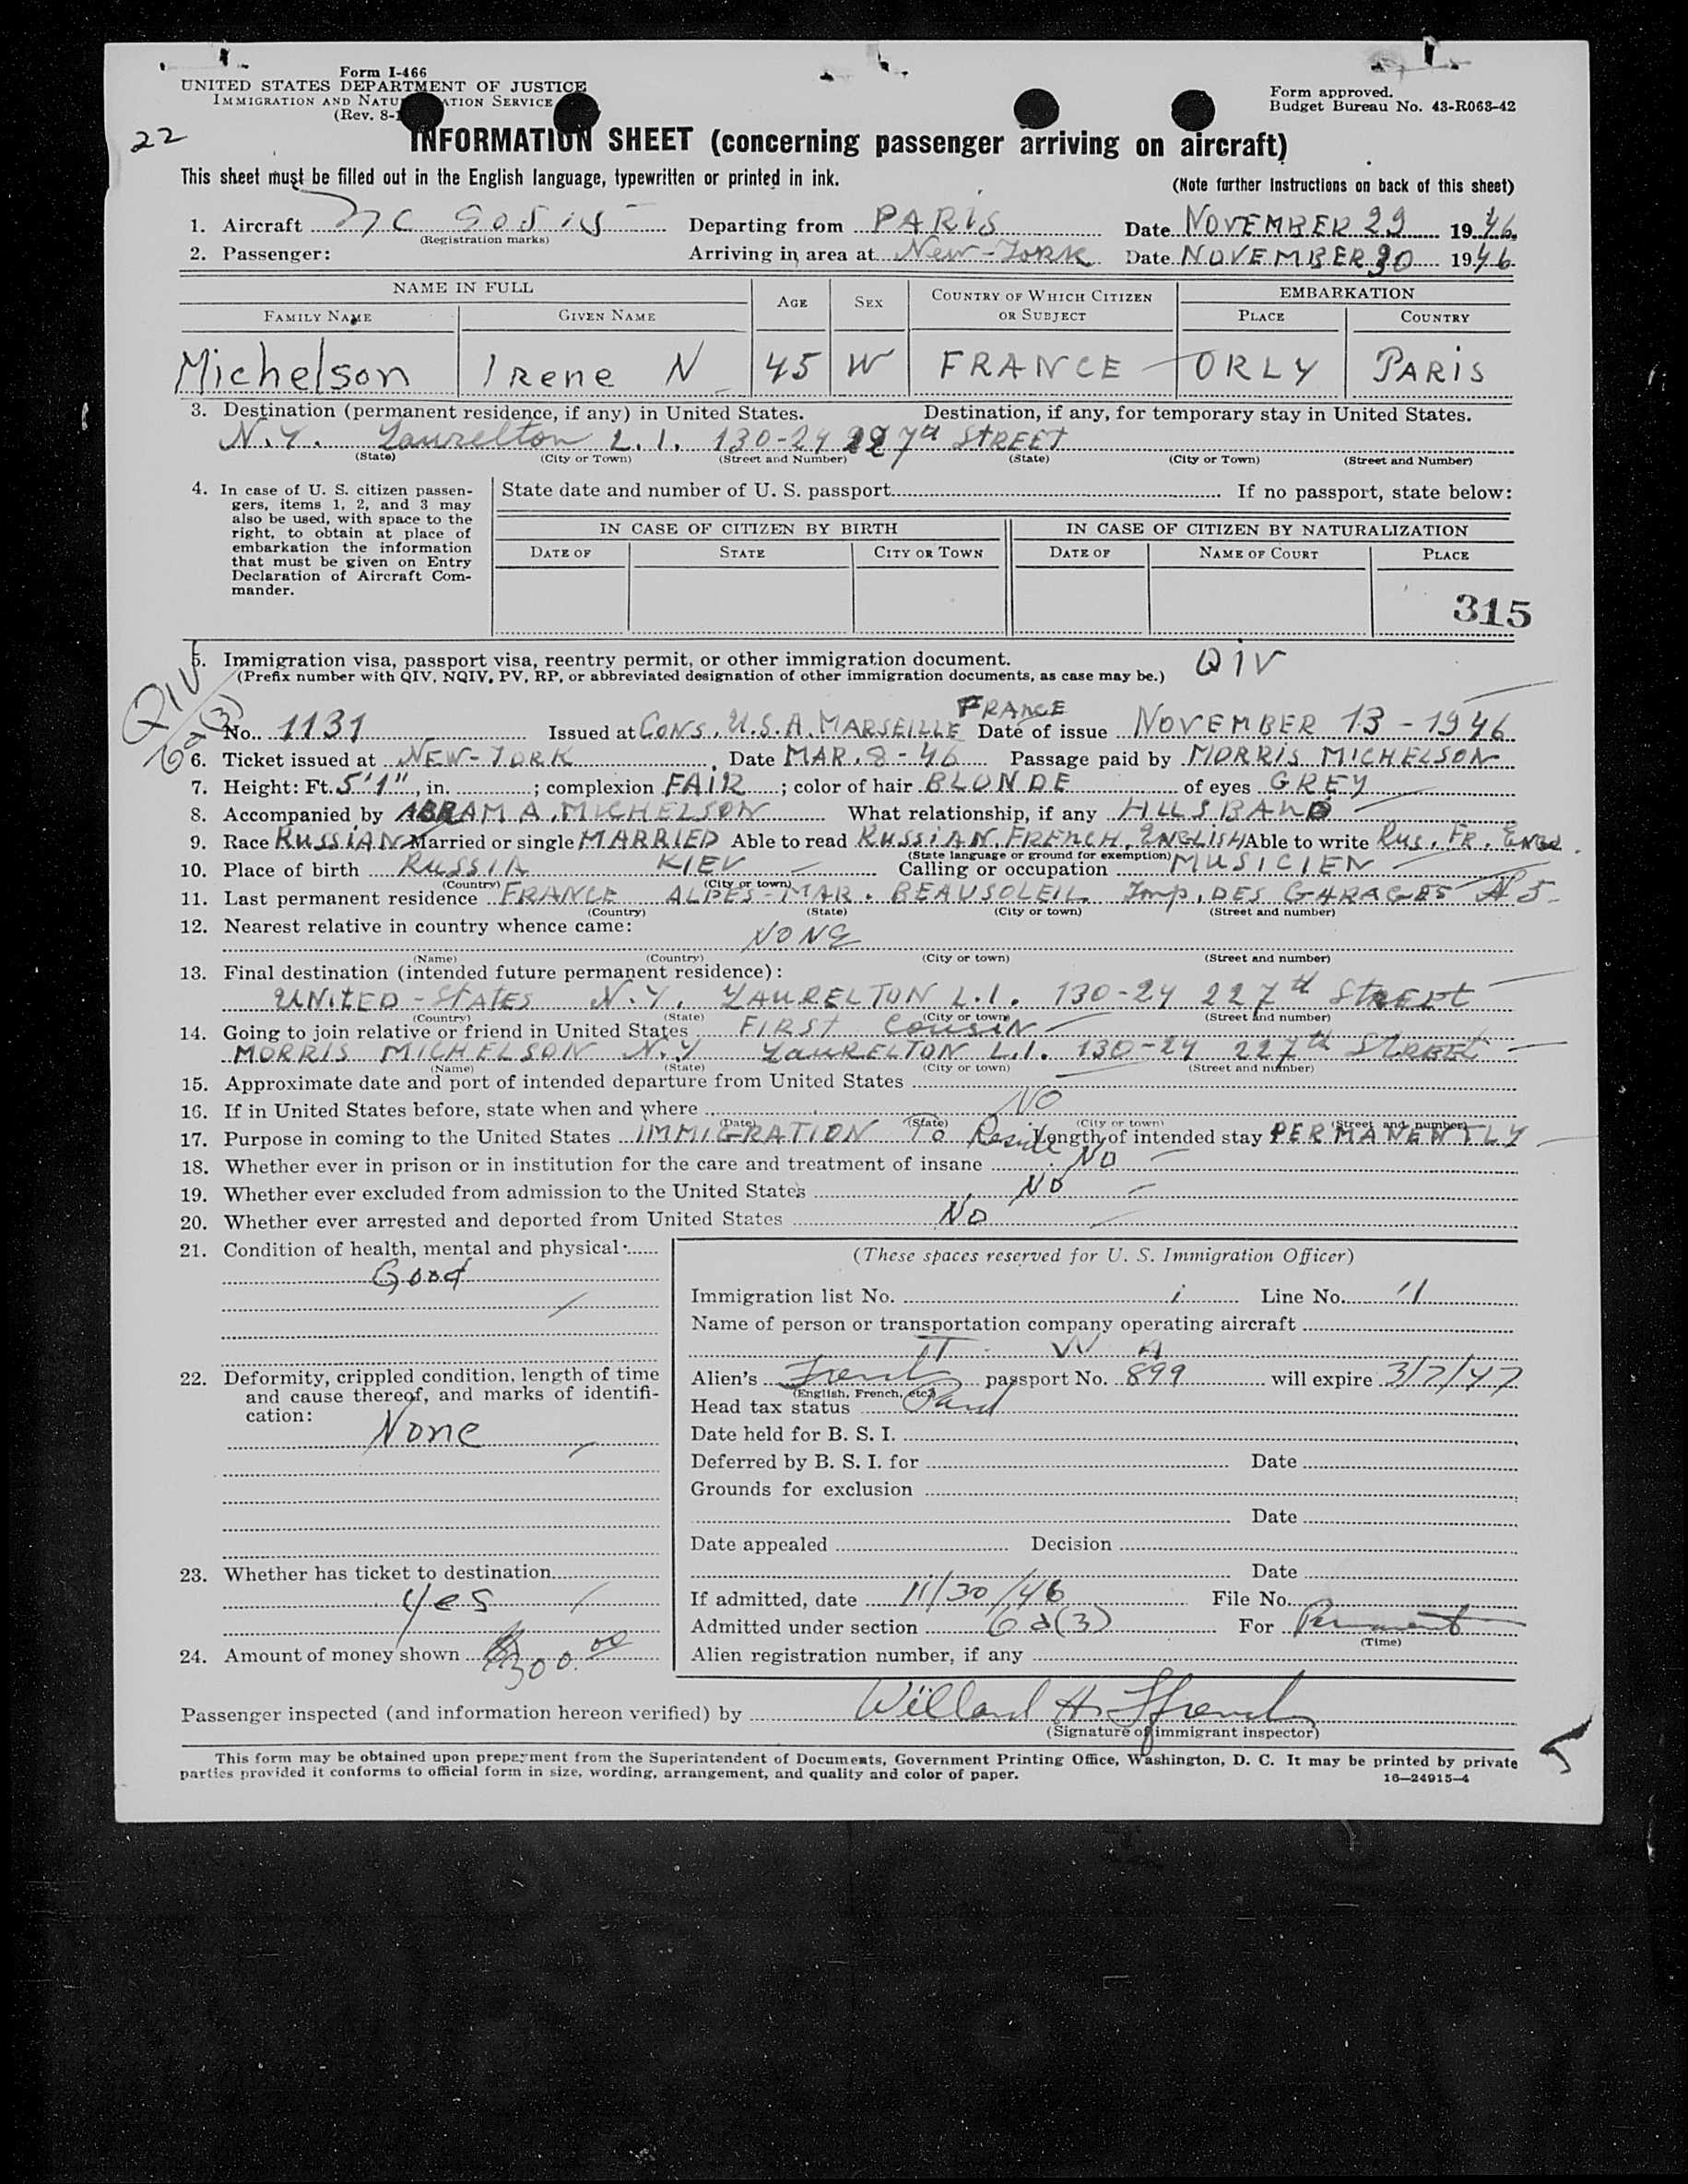 Form I-466
UNITED STATES DEPARTMENT OF JUSTICE
IMMIGRATION AND NATU ATION SERVICE
(Rev. 8-
Form approved.
Budget Bureau No. 43-R063-42
22
INFORMATION SHEET (concerning passenger arriving on aircraft)
This sheet must be filled out in the English language, typewritten or printed in ink.
(Note further instructions on back of this sheet)
1. Aircraft NC Departing from PARIS Date NOVEMBER 29 1946
(Registration marks)
2. Passenger: Arriving in area at New-York Date NOVEMBER 30 1946
NAME IN FULL AGE SEX COUNTRY OF WHICH CITIZEN OR SUBJECT EMBARKATION
FAMILY NAME GIVEN NAME PLACE COUNTRY
Michelson Irene N 45 W FRANCE ORLY PARIS
3. Destination (permanent residence, if any) in United States. Destination, if any, for temporary stay in United States.
N.Y. Laurelton L.I. 130-24 227th STREET
(State) (City or Town) (Street and Number) (State) (City or Town) (Street and Number)
4. In case of U. S. citizen passen-
gers, items 1, 2, and 3 may
also be used, with space to the
right, to obtain at place of
embarkation the information
that must be given on Entry
Declaration of Aircraft Com-
mander.
State date and number of U. S. passport If no passport, state below:
IN CASE OF CITIZEN BY BIRTH IN CASE OF CITIZEN BY NATURALIZATION
DATE OF STATE CITY OR TOWN DATE OF NAME OF COURT PLACE
315
QIV
6a(3)
5. Immigration visa, passport visa, reentry permit, or other immigration document. QIV
(Prefix number with QIV, NQIV, PV, RP, or abbreviated designation of other immigration documents, as case may be.)
FRANCE
No. 1131 Issued at CONS. U.S.A. MARSEILLE Date of issue NOVEMBER 13-1946
6. Ticket issued at NEW-YORK, Date MAR. 8-46 Passage paid by MORRIS MICHELSON
7. Height: Ft. 5'1", in. ; complexion FAIR; color of hair BLONDE of eyes GREY
8. Accompanied by ABRAM A. MICHELSON What relationship, if any HUSBAND
9. Race RUSSIAN Married or single MARRIED Able to read RUSSIAN, FRENCH, ENGLISH Able to write Rus. FR. ENGL.
(State language or ground for exemption)
10. Place of birth RUSSIA KIEV Calling or occupation MUSICIEN
(Country) (City or town)
11. Last permanent residence FRANCE ALPES-MAR. BEAUSOLEIL Imp. DES GARAGES No 5
(Country) (State) (City or town) (Street and number)
12. Nearest relative in country whence came:
NONE
(Name) (Country) (City or town) (Street and number)
13. Final destination (intended future permanent residence):
UNITED-STATES N.Y. LAURELTON L.I. 130-24 227th STREET
(Country) (State) (City or town) (Street and number)
14. Going to join relative or friend in United States FIRST COUSIN
MORRIS MICHELSON N.Y LAURELTON L.I. 130-24 227th STREET
(Name) (State) (City or town) (Street and number)
15. Approximate date and port of intended departure from United States
16. If in United States before, state when and where NO
(Date) (State) (City or town) (Street and number)
17. Purpose in coming to the United States IMMIGRATION To Reside Length of intended stay PERMANENTLY
18. Whether ever in prison or in institution for the care and treatment of insane NO
19. Whether ever excluded from admission to the United States NO
20. Whether ever arrested and deported from United States NO
21. Condition of health, mental and physical
Good
22. Deformity, crippled condition, length of time
and cause thereof, and marks of identifi-
cation:
None
23. Whether has ticket to destination
Yes
24. Amount of money shown $300.00
(These spaces reserved for U. S. Immigration Officer)
Immigration list No. 1 Line No. 11
Name of person or transportation company operating aircraft
T W A
Alien's French passport No. 899 will expire 3/7/47
(English, French, etc.)
Head tax status Paid
Date held for B. S. I.
Deferred by B. S. I. for Date
Grounds for exclusion
Date
Date appealed Decision
Date
If admitted, date 11/30/46 File No.
Admitted under section 6a(3) For Permanent
(Time)
Alien registration number, if any
Passenger inspected (and information hereon verified) by Willard H.
(Signature of immigrant inspector)
5
This form may be obtained upon prepayment from the Superintendent of Documents, Government Printing Office, Washington, D. C. It may be printed by private
parties provided it conforms to official form in size, wording, arrangement, and quality and color of paper.
16—24915-4